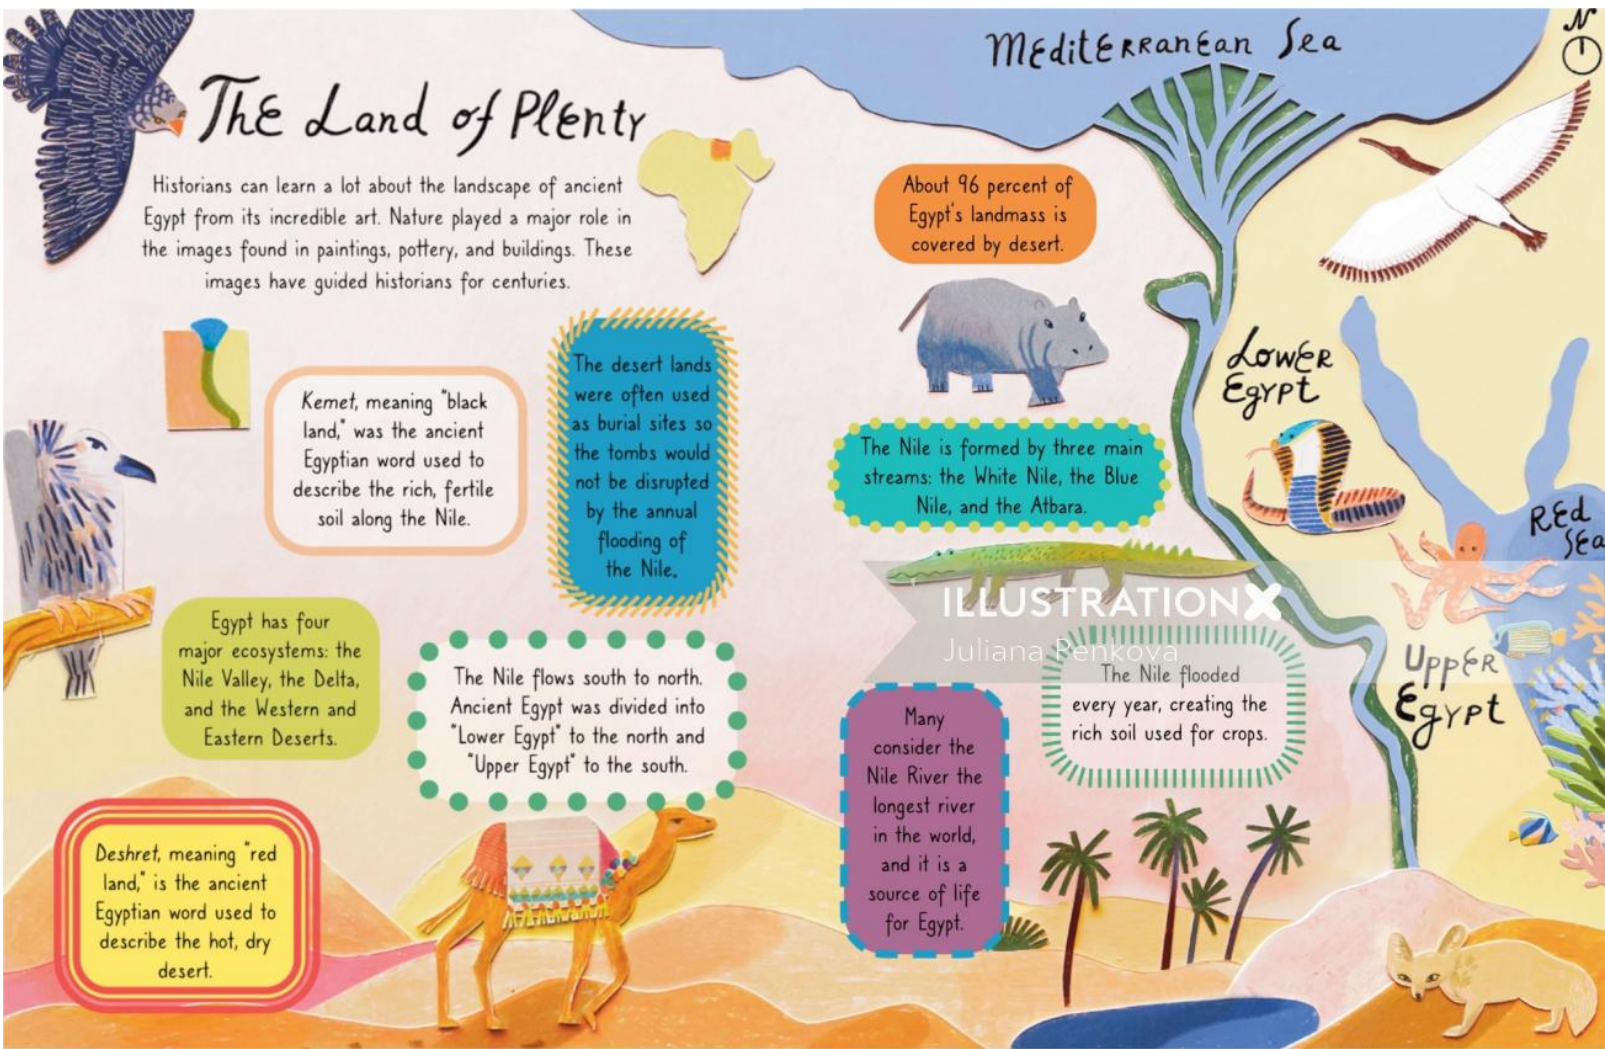 The Land of Plenty
Historians can learn a lot about the landscape of ancient
Egypt from its incredible art. Nature played a major role in
the images found in paintings, pottery, and buildings. These
images have guided historians for centuries.
Kemet, meaning "black
land," was the ancient
Egyptian word used to
describe the rich, fertile
soil along the Nile.
The desert lands
were often used
as burial sites so
the tombs would
not be disrupted
by the annual
flooding of
the Nile.
Egypt has four
major ecosystems: the
Nile Valley, the Delta,
and the Western and
Eastern Deserts.
The Nile flows south to north.
Ancient Egypt was divided into
"Lower Egypt" to the north and
"Upper Egypt" to the south.
Deshret, meaning "red
land," is the ancient
Egyptian word used to
describe the hot, dry
desert.
Mediterranean Sea
N
About 96 percent of
Egypt's landmass is
covered by desert.
Lower
Egypt
The Nile is formed by three main
streams: the White Nile, the Blue
Nile, and the Atbara.
Red
Sea
ILLUSTRATIONX
Juliana Penkova
The Nile flooded
every year, creating the
rich soil used for crops.
Upper
Egypt
Many
consider the
Nile River the
longest river
in the world,
and it is a
source of life
for Egypt.